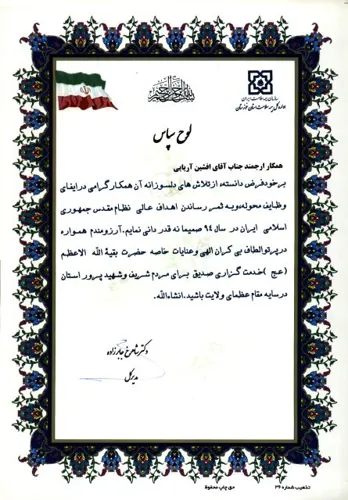 بسم الله الرحمن الرحیم
سازمان بیمه سلامت ایران
اداره کل بیمه سلامت استان خوزستان
لوح سپاس
همکار ارجمند جناب آقای افشین آریایی
برخود فرض دانسته، از تلاش های دلسوزانه آن همکار گرامی در ایفای
وظایف محوله، و به ثمر رساندن اهداف عالی نظام مقدس جمهوری
اسلامی ایران در سال ۹۴ صمیمانه قدردانی نمایم. آرزومندم همواره
در پرتو الطاف بی کران الهی و عنایات خاصه حضرت بقیة الله الاعظم
(عج) خدمت گزاری صدیق برای مردم شریف و شهید پرور استان
در سایه مقام عظمای ولایت باشید. انشاءالله.
دکتر شاهرخ جابرزاده
مدیرکل
تذهیب شماره ۳۶
حق چاپ محفوظ